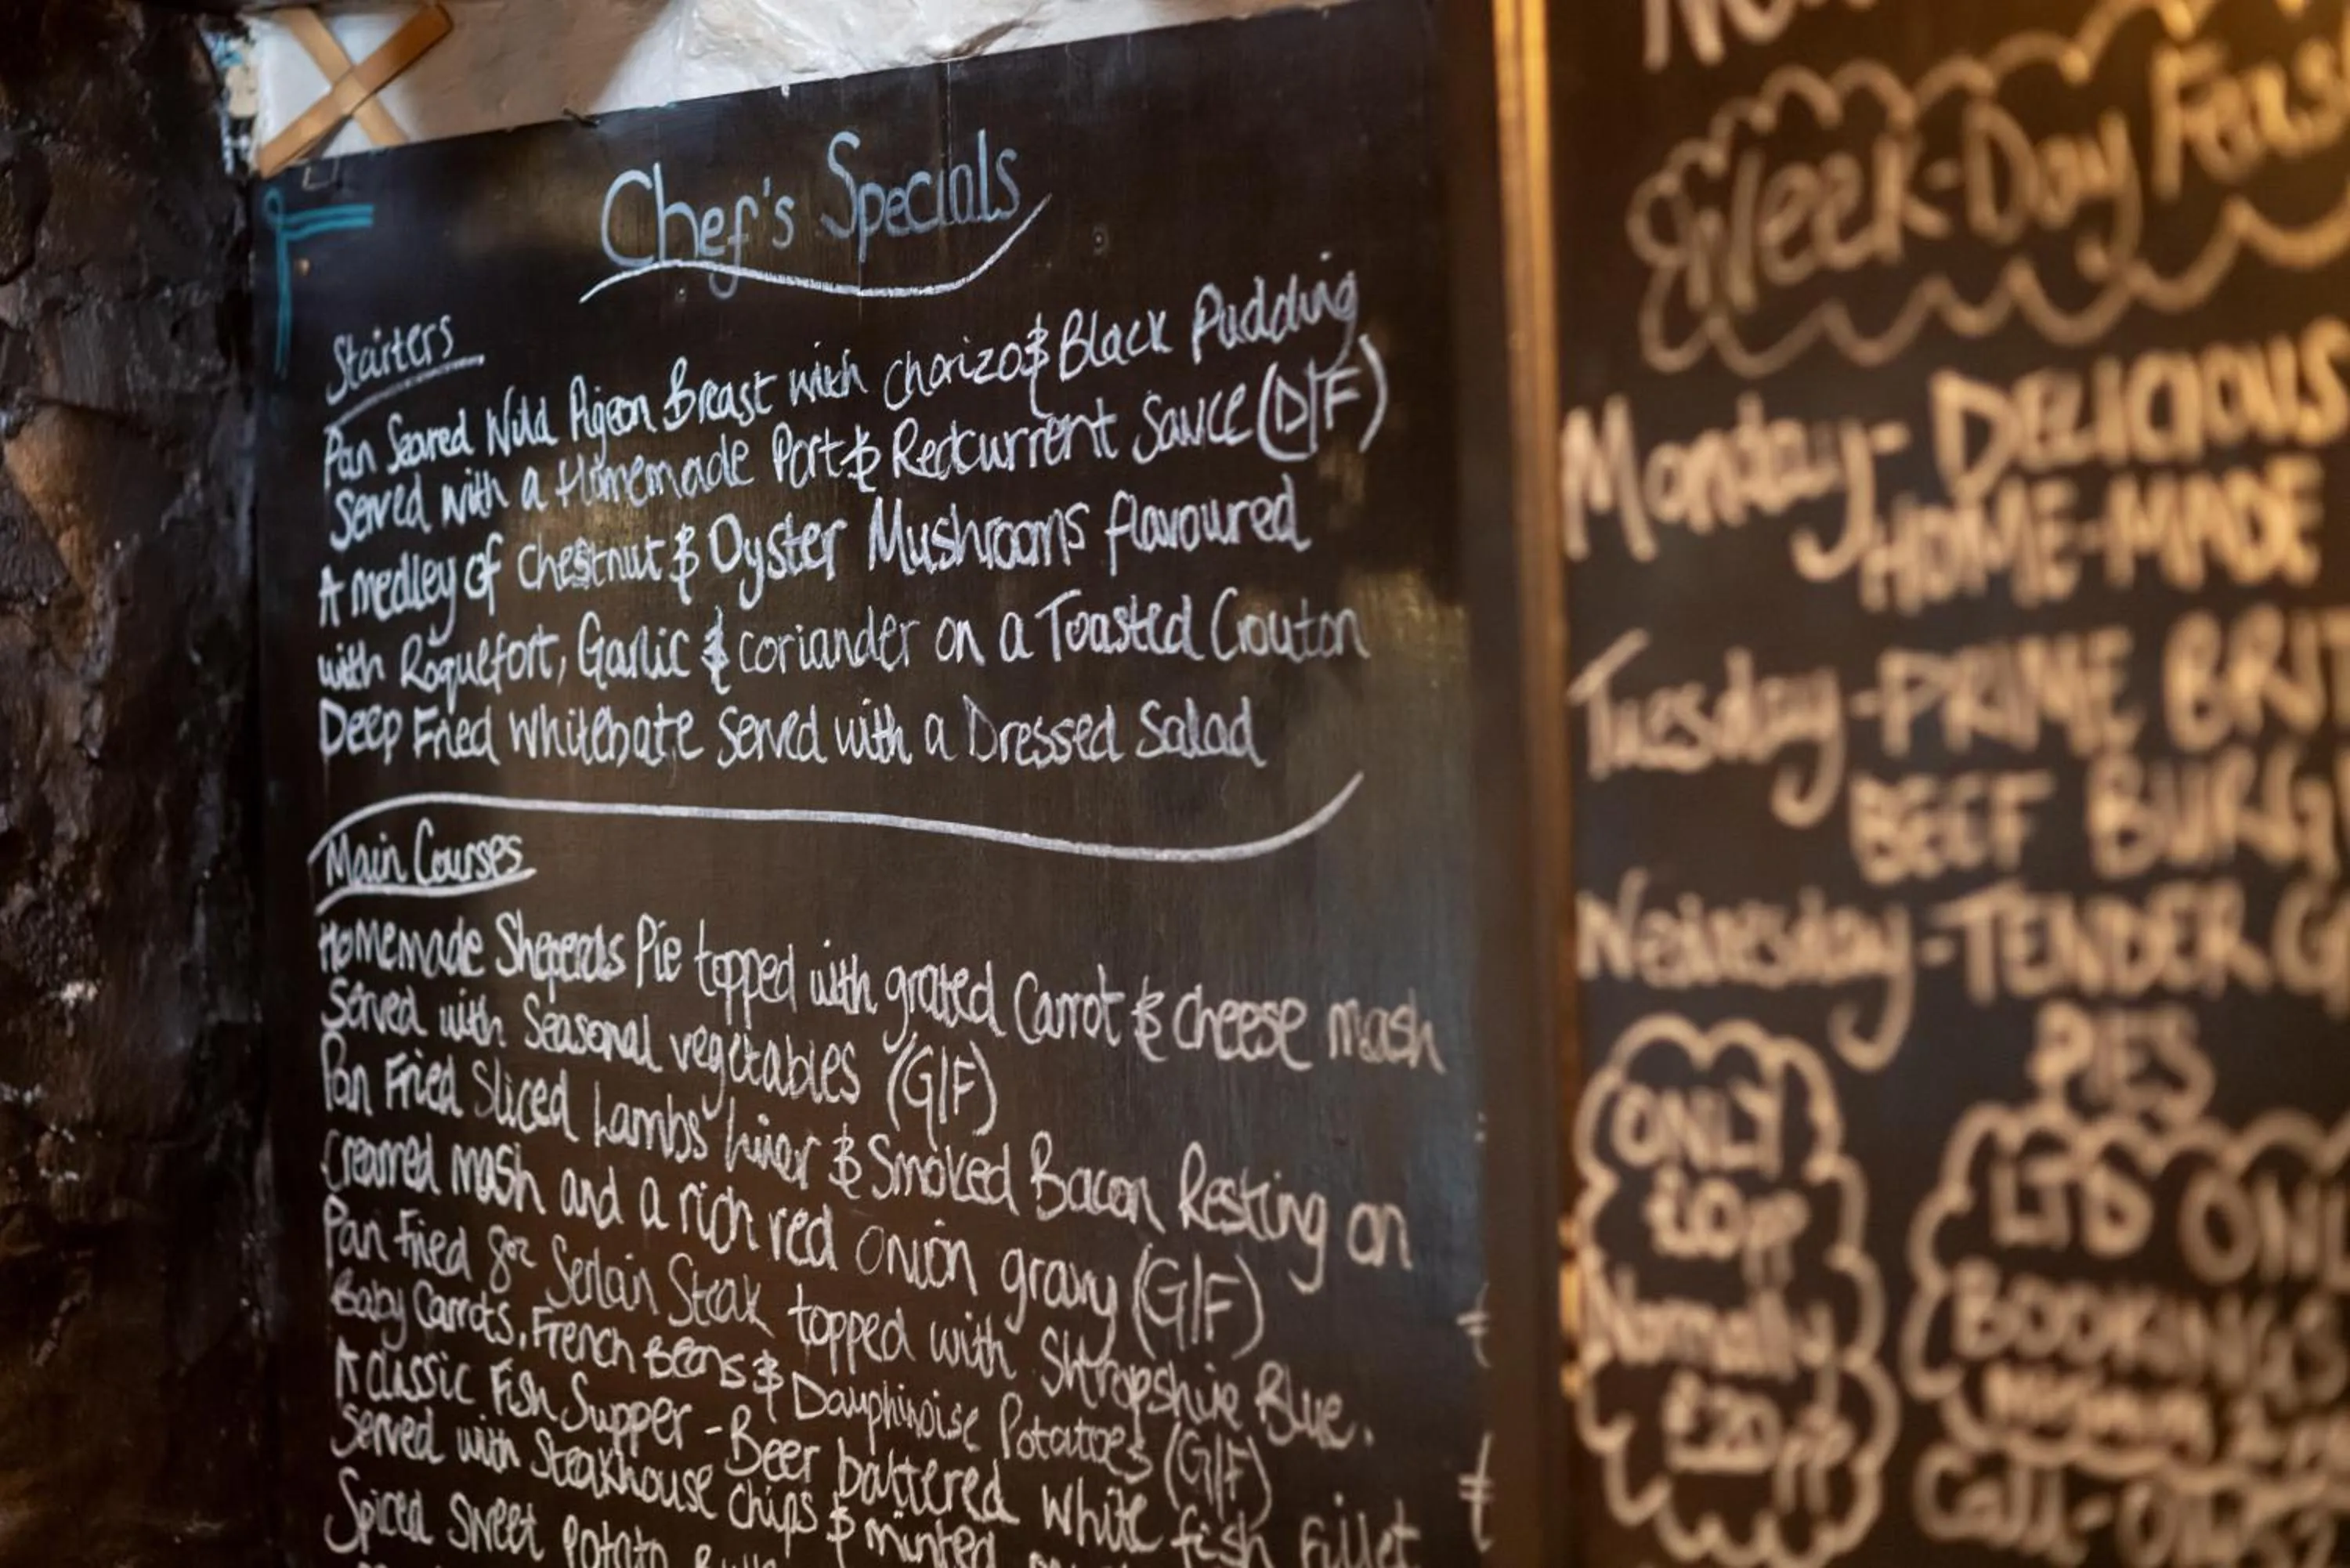 Chef's Specials
Starters
Pan Seared Wild Pigeon Breast with chorizo & Black Pudding
Served with a Homemade Port & Redcurrent Sauce (D/F)
A medley of Chestnut & Oyster Mushrooms flavoured
with Roquefort, Garlic & coriander on a Toasted Crouton
Deep Fried Whitebate Served with a Dressed Salad
Main Courses
Homemade Sheperds Pie topped with grated Carrot & cheese mash
Served with Seasonal vegetables (G/F)
Pan Fried Sliced Lambs Liver & Smoked Bacon Resting on
Creamed mash and a rich red onion gravy (G/F)
Pan Fried 8oz Serlain Steak topped with Shropshire Blue.
Baby Carrots, French Beans & Dauphinoise Potatoes (G/F)
A classic Fish Supper - Beer battered White fish fillet
Served with Steakhouse Chips & minted
Spiced Sweet Potato
Week-Day
Monday - DELICIOUS
HOME-MADE
Tuesday - PRIME BRIT
BEEF BURG
Wednesday - TENDER
PIES
ONLY
£10pp
Normally
£20pp
LTD ONL
BOOKINGS
Call-